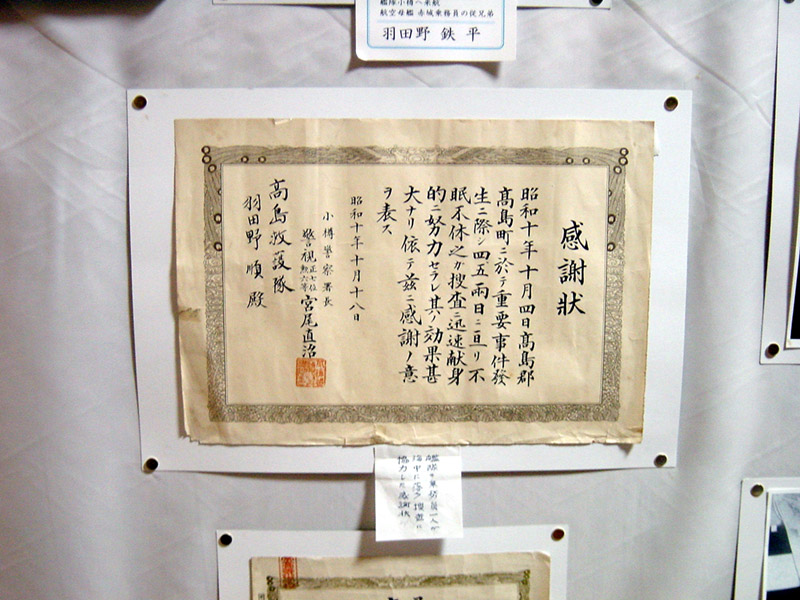 艦隊小樽へ来航
航空母艦 赤城乗務員の従兄弟
羽田野 鉄 平
感謝状
昭和十年十月四日髙島郡
髙島町ニ於テ重要事件發
生ニ際シ四五兩日ニ亘リ不
眠不休之カ搜査ニ迅速献身
的ニ努力セラレ其ノ効果甚
大ナリ依テ茲ニ感謝ノ意
ヲ表ス
昭和十年十月十八日
小樽警察署長
警視正七位勲六等宮尾直治
髙島救護隊
羽田野 順 殿
艦隊の乗務員一人が
海中に落ち捜査に
協力した感謝状